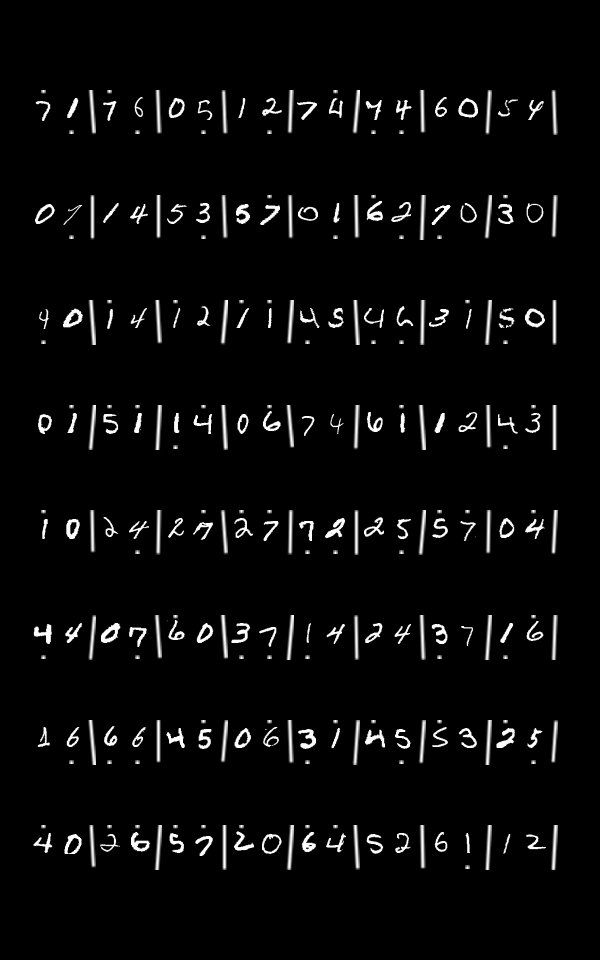 7 1 | 7 6 | 0 5 | 1 2 | 7 4 | 7 4 | 6 0 | 5 4 |
0 7 | 1 4 | 5 3 | 5 7 | 0 1 | 6 2 | 7 0 | 3 0 |
4 0 | 1 4 | 1 2 | 1 1 | 4 5 | 4 6 | 3 1 | 5 0 |
0 1 | 5 1 | 1 4 | 0 6 | 7 4 | 6 1 | 1 2 | 4 3 |
1 0 | 2 4 | 2 7 | 2 7 | 7 2 | 2 5 | 5 7 | 0 4 |
4 4 | 0 7 | 6 0 | 3 7 | 1 4 | 2 4 | 3 7 | 1 6 |
1 6 | 6 6 | 4 5 | 0 6 | 3 1 | 4 5 | 5 3 | 2 5 |
4 0 | 2 6 | 5 7 | 2 0 | 6 4 | 5 2 | 6 1 | 1 2 |